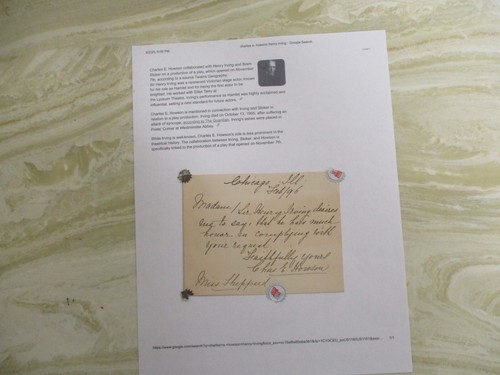 Charles E. Howson Henry Irving - Google Search
Charles E. Howson collaborated with Henry Irving and Bram
Stoker on a production of a play, which opened on November
7th, according to a source Theatre Geography.
Sir Henry Irving was a renowned Victorian stage actor, known
for his role as Hamlet and for being the first actor to be
knighted. He worked with Ellen Terry at
the Lyceum Theatre. Irving's performance as Hamlet was highly acclaimed and
influential, setting a new standard for future actors.
Charles E. Howson is mentioned in connection with Irving and Stoker in
relation to a play production. Irving died on October 13, 1905, after suffering an
attack of syncope, according to The Guardian. Irving's ashes were placed in
Poets' Corner at Westminster Abbey.
While Irving is well-known, Charles E. Howson's role is less prominent in the
historical history. The collaboration between Irving, Stoker, and Howson is
specifically linked to the production of a play that opened on November 7th.
Chicago, Ill
Feb/96
Madam/ Sir Henry Irving desires
me to say: that he has much
honor in complying with
your request
Faithfully yours
Chas E Howson
Miss Sheppard
1/1